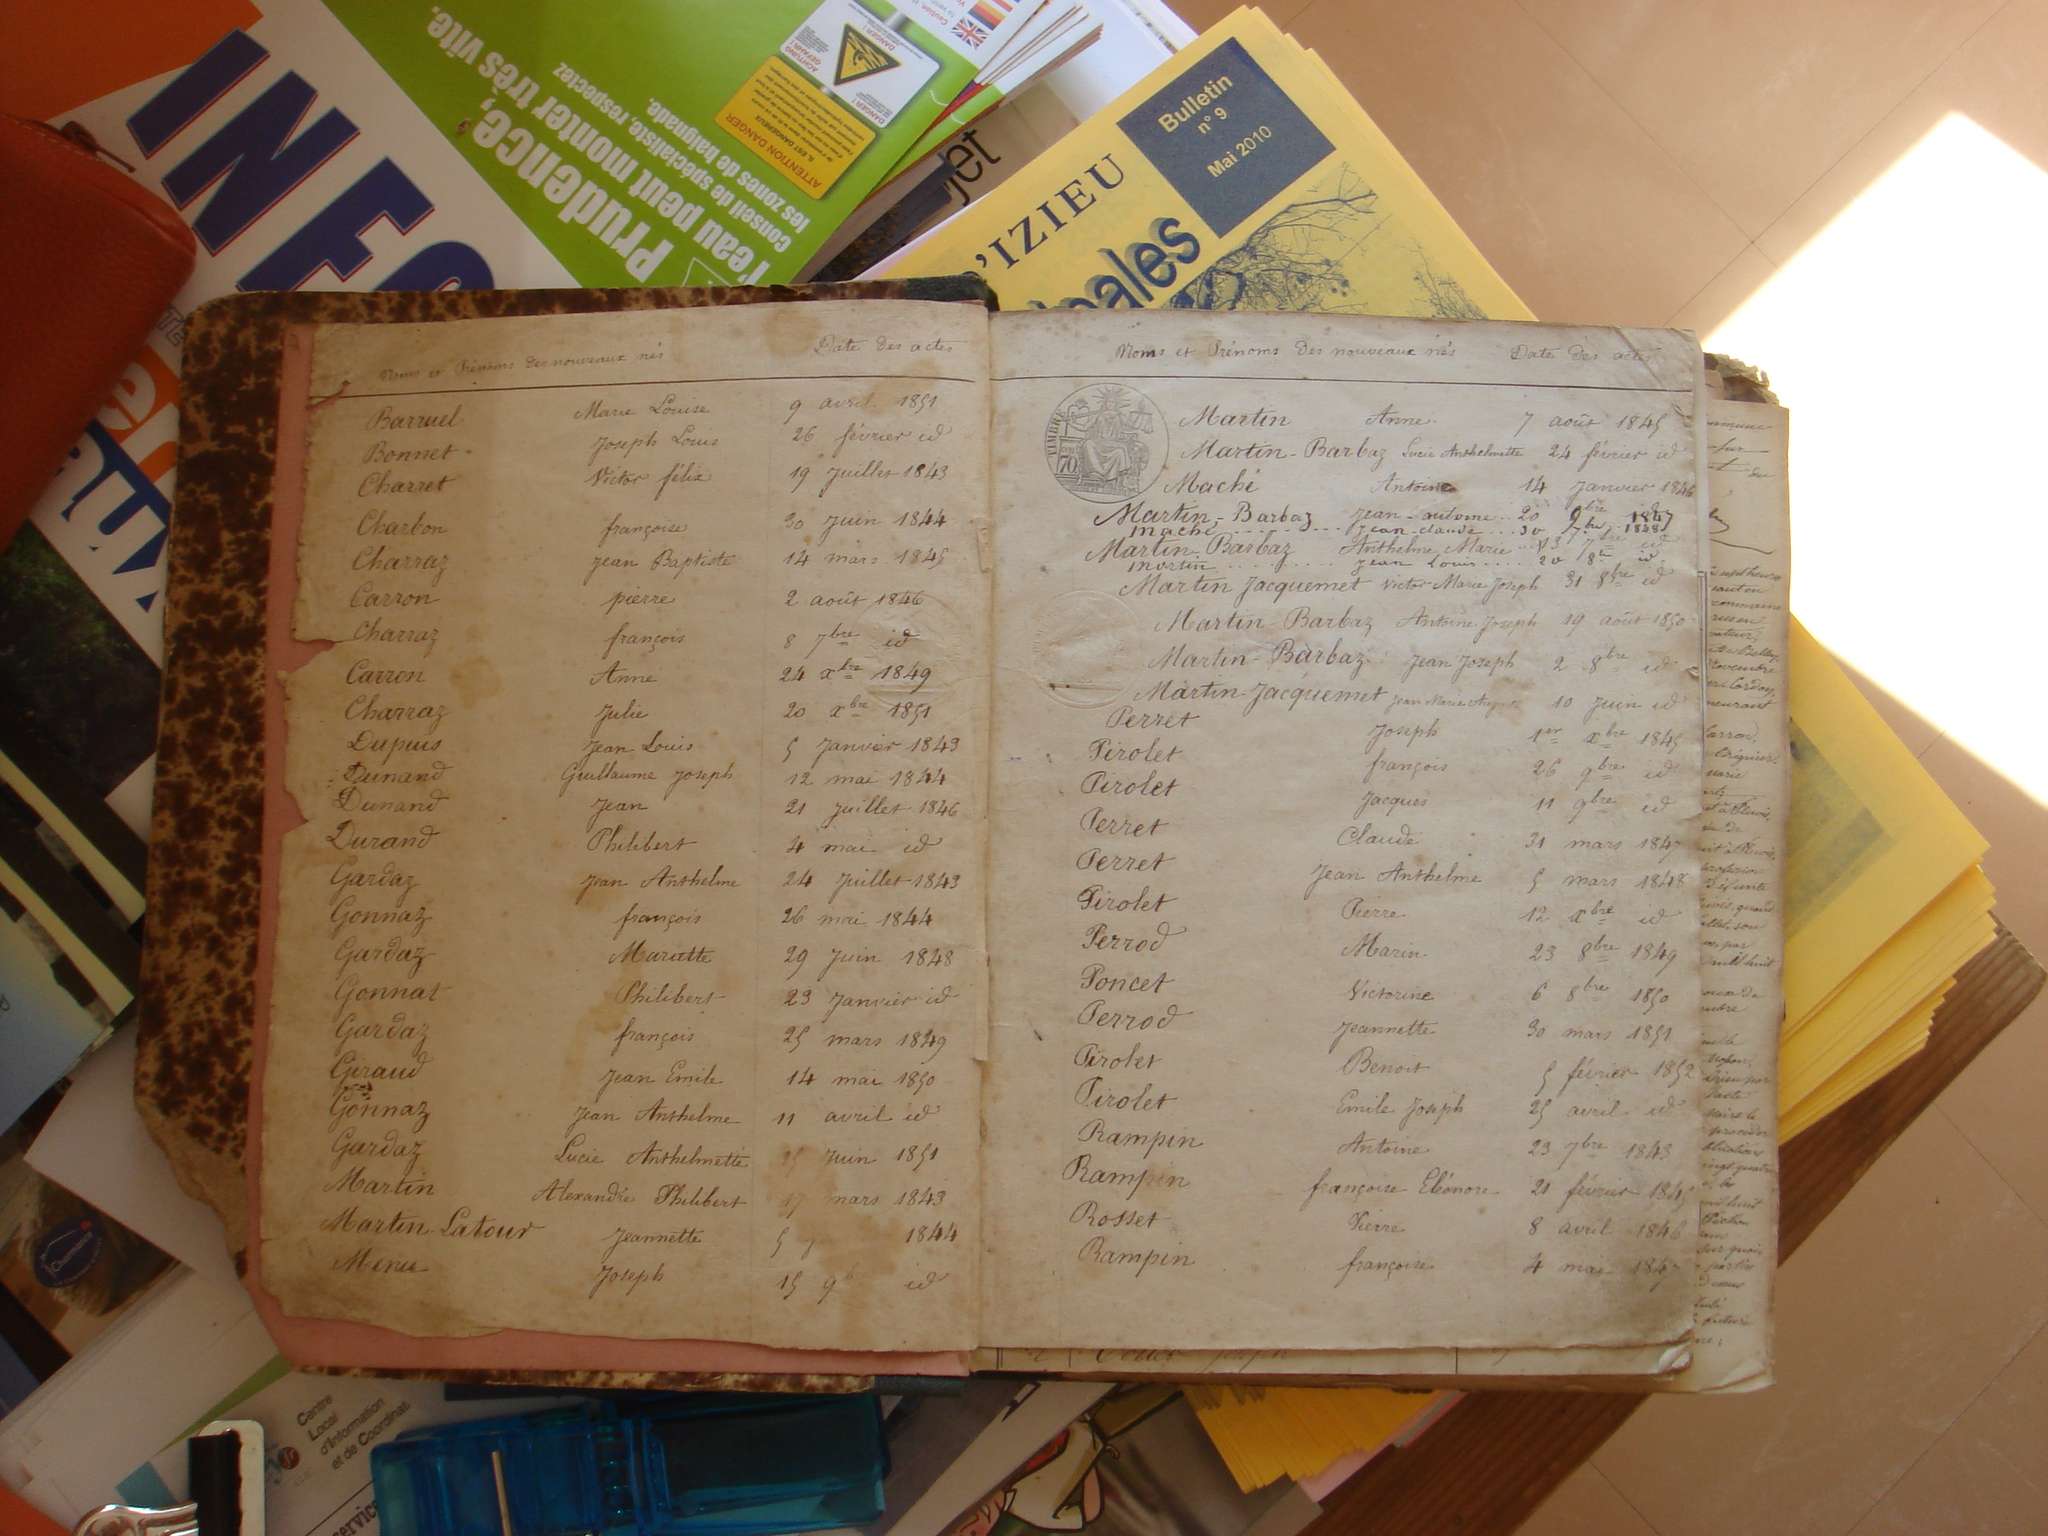 INFO
Prudence,
l'eau peut monter très vite.
conseil de spécialiste, respectez
les zones de baignade.
ATTENTION DANGER
IL EST DANGEREUX
ACHTUNG
GEFAHR !
DANGER !
jet
Bulletin
n° 9
Mai 2010
D'IZIEU
pales
Noms et Prénoms des nouveaux nés Date des actes
Barruel Marie Louise 9 avril 1851
Bonnet Joseph Louis 26 février id
Charret Victor félix 19 Juillet 1843
Charbon françoise 30 Juin 1844
Charraz Jean Baptiste 14 mars 1845
Carron pierre 2 août 1846
Charraz françois 8 7bre id
Carron Anne 24 xbre 1849
Charraz Julie 20 xbre 1851
Dupuis Jean Louis 5 Janvier 1843
Dunand Guillaume Joseph 12 mai 1844
Dunand Jean 21 Juillet 1846
Durand Philibert 4 mai id
Gardaz Jean Anthelme 24 Juillet 1843
Gonnaz françois 26 mai 1844
Gardaz Mariette 29 Juin 1848
Gonnat Philibert 23 Janvier id
Gardaz françois 25 mars 1849
Giraud Jean Emile 14 mai 1850
Gonnaz Jean Anthelme 11 avril id
Gardaz Lucie Anthelmette 15 Juin 1851
Martin Alexandre Philibert 17 mars 1843
Martin Latour Jeannette 5 1844
Menu Joseph 15 9b id
Noms et Prénoms des nouveaux nés Date des actes
TIMBRE
70
Martin Anne 7 août 1845
Martin-Barbaz Lucie Anthelmette 24 février id
Maché Antoine 14 Janvier 1846
Martin-Barbaz Jean-antoine 20 9bre 1847
maché Jean claude 30 7bre 1848
Martin Barbaz Anthelme Marie 13 7bre id
martin Jean Louis 20 8re id
Martin Jacquemet Victor Marie Joseph 31 8bre id
Martin Barbaz Antoine Joseph 19 août 1850
Martin-Barbaz Jean Joseph 2 8bre id
Martin-Jacquemet Jean Marie 10 Juin id
Perret Joseph 1er xbre 1845
Pirolet françois 26 9bre id
Pirolet Jacques 11 9bre id
Perret Claude 31 mars 1847
Perret Jean Anthelme 5 mars 1848
Pirolet Pierre 12 xbre id
Perrod Marin 23 8bre 1849
Poncet Victorine 6 8bre 1850
Perrod Jeannette 30 mars 1851
Pirolet Benoit 5 février 1852
Pirolet Emile Joseph 25 avril id
Rampin Antoine 23 7bre 1843
Rampin françoise Eléonore 21 février 1845
Rosset Pierre 8 avril 1846
Rampin françoise 4 mai 1847
Centre
Local
d'Information
et de Coordinat
service